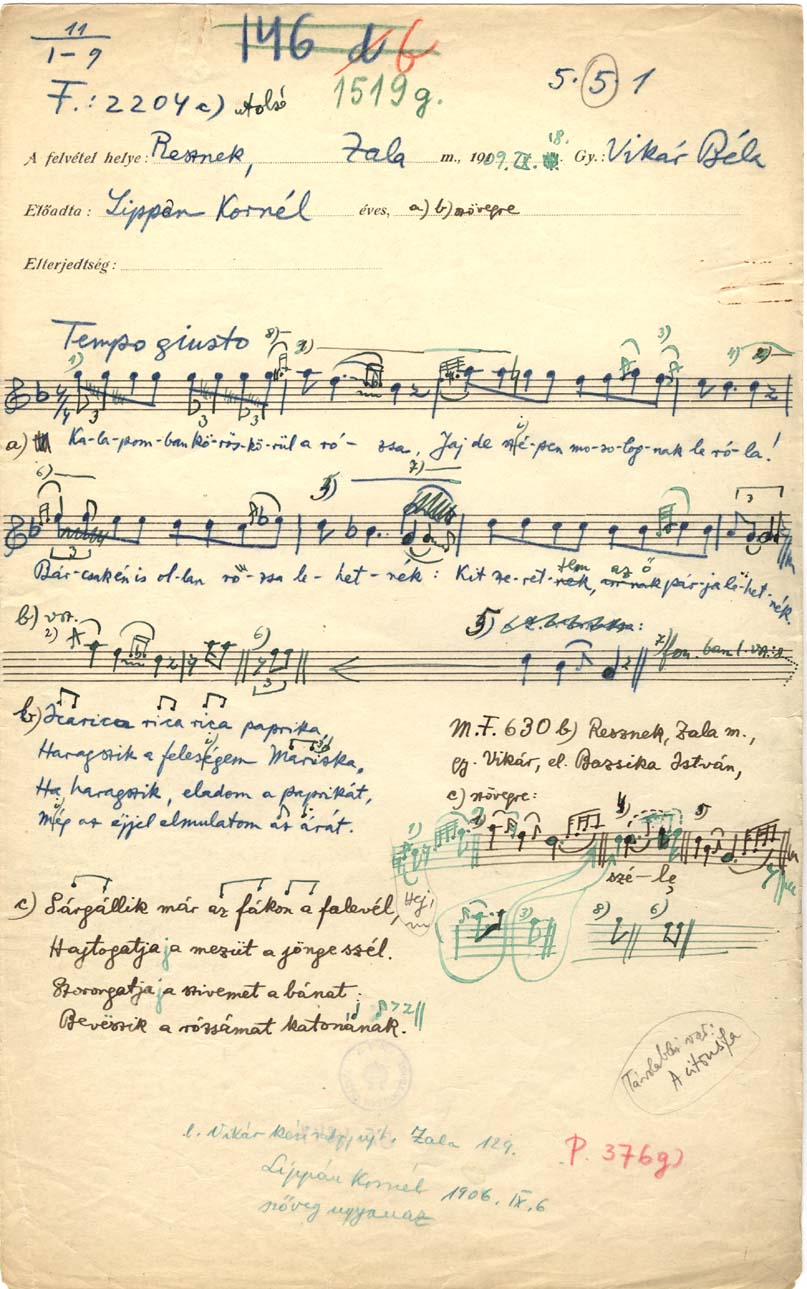 11
1–9
146 d b
F.: 2204 c) Alsó
1519 g.
5. 5. 1
A felvétel helye: Resznek, Zala m., 1909. IX. 18. Gy.: Vikár Béla
Előadta: Lippán Kornél éves, a) b) szövegre
Elterjedtség:
Tempo giusto
a) Ka-la-pom-ban kö-rös-kö-rül a ró- zsa, Jaj de szé-pen mo-so-log-nak le ró-la!
Bár-csak én is ol-lan ró-zsa le-het-nék: Kit sze-ret-tem az ő pár-ja le-het-nék.
b) var.
b) Icarica rica rica paprika
Haragszik a feleségem Mariska,
Ha haragszik, eladom a paprikát,
Még az éjjel elmulatom az árát.
M.F. 630 b) Resznek, Zala m.,
gy. Vikár, el. Bazsika István,
c) szövegre:
szé-le
Hej!
c) Sárgállik már az fákon a falevél,
Hajtogatja ja mezüt a jönge szél.
Szorongatja ja szivemet a bánat:
Bevëszik a rózsámat katonának.
Távolabbi var:
A citrusfa
l. Vikár Zala 129.
Lippán Kornél 1906. IX. 6
szöveg ugyanaz
P. 376 g)